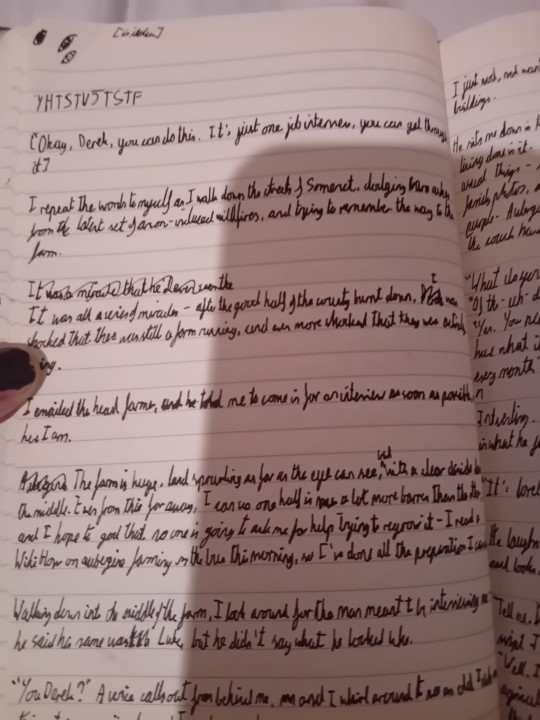 [in italics]
YHTSTVSTSTF
["Okay, Derek, you can do this. It's just one job interview, you can get through
it]
I repeat the words to myself as I walk down the streets of Somerset, dodging burn
from the latest set of arson-induced wildfires, and trying to remember the way to the
farm.
It was a miracle that the
It was all a series of miracles - after the good half of the county burnt down, I was
shocked that there was still a farm running, and even more shocked that they were actively
ing.
I emailed the head farmer, and he told me to come in for an interview as soon as possible
here I am.
The farm is huge, land sprawling as far as the eye can see, with a clear divide
the middle. Even from this far away, I can see one half is a lot more barren than the
and I hope to god that no one is going to ask me for help trying to regrow it - I read a
WikiHow on aubergine farming on the bus this morning, so I've done all the preparation I
Walking down into the middle of the farm, I look around for the man meant to be interviewing me
he said his name was Luke, but he didn't say what he looked like.
"You Derek?" A voice calls out from behind me, and I whirl around to see an old
I just nod, and
buildings.
He sits me down in
living done in it.
things -
family photos,
purple. Auberg
the couch
"What do you
"Of the - uh - d
"Yes. You
how what i
every month"
in what he
"It's love
He laughs
and looks
"Tell me, D
"Well, I